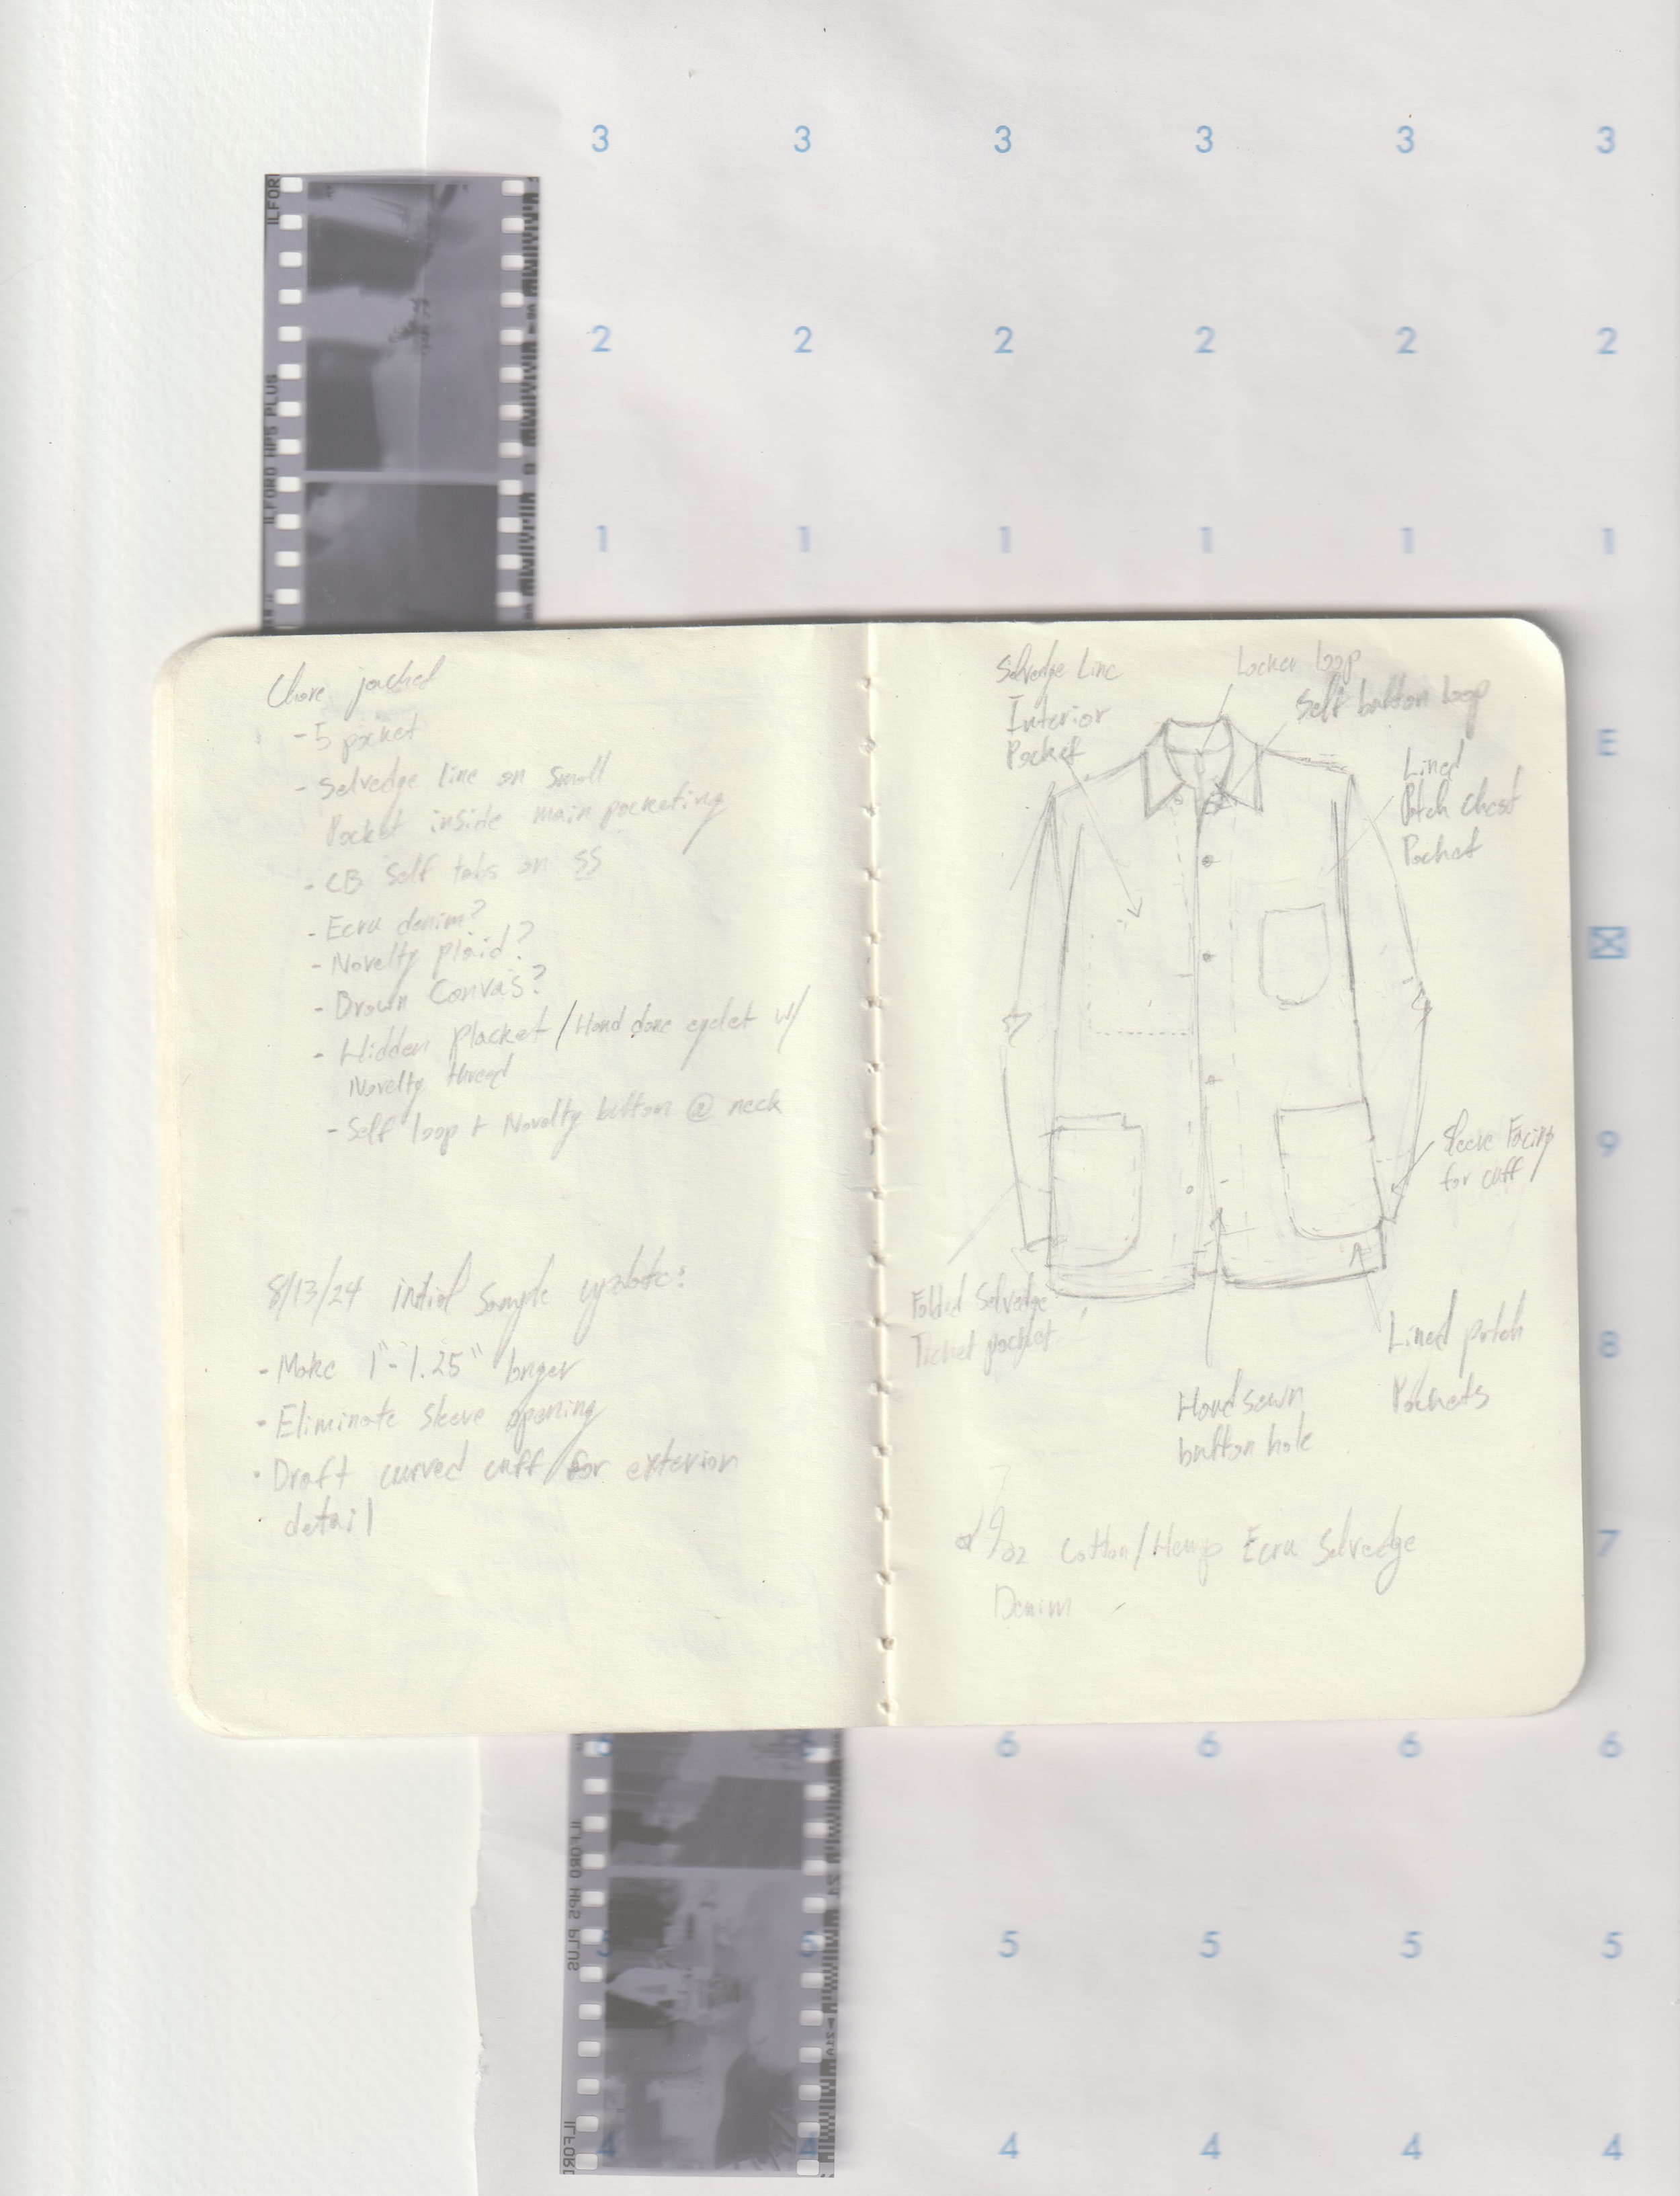 3 3 3 3 3 3
ILFOR
2 2 2 2 2 2
ILFORD HP5 PLUS
9
1 1 1 1 1 1
Chore jacket
- 5 pocket
- Selvedge line on small
Pocket inside main pocketing
- CB Self tabs on SS
- Ecru denim?
- Novelty plaid?
- Brown Canvas?
- Hidden placket / Hand done eyelet w/
Novelty thread
- Self loop + Novelty button @ neck
8/13/24 initial sample update:
- Make 1"-1.25" longer
- Eliminate sleeve opening
- Draft curved cuff for exterior
detail
Selvedge Line
Interior
Pocket
Locker loop
Self button loop
Lined
Patch Chest
Pocket
Sleeve Facing
for cuff
Folded Selvedge
Ticket pocket
Lined patch
Pockets
Hand sewn
button hole
Cotton/Hemp Ecru Selvedge
Denim
E
9
8
7
6 6 6 6 6 6
ILFORD HP5 PLUS
5 5 5 5 5
ILFORD
4 4 4 4 4 4